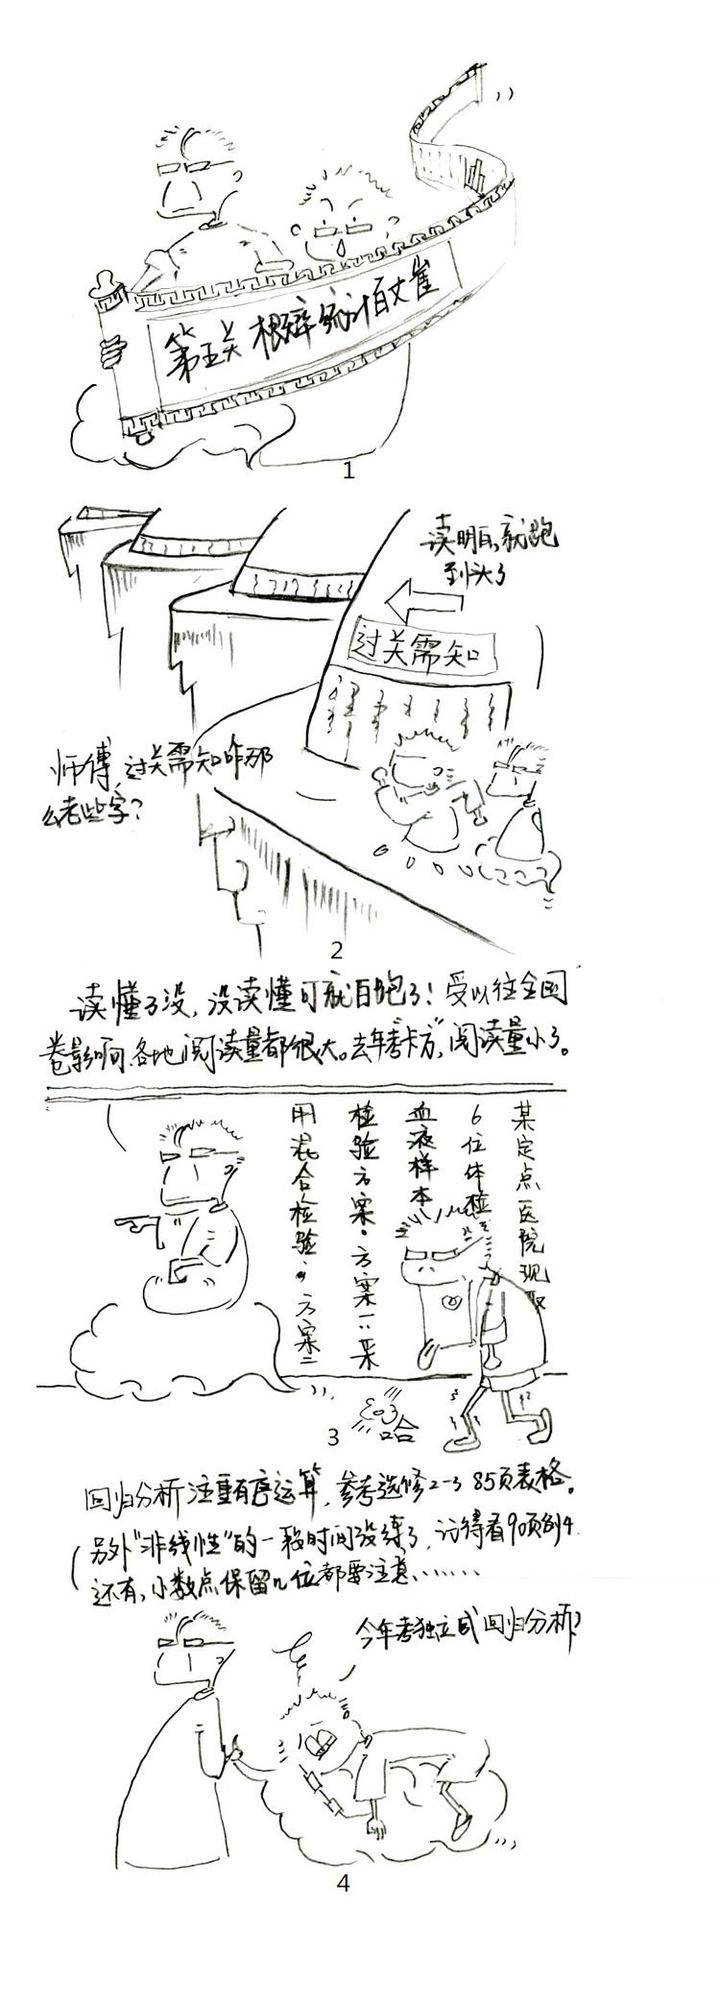 第五关 概率统计百丈崖
1
读明白,就跑
到头了
过关需知
师傅,过关需知咋那
么老些字?
2
读懂了没,没读懂可就白跑了!受以往全国
卷影响,各地阅读量都很大。去年考"卡方",阅读量小了。
某定点医院现取
6位体检
血液样本
检验方案。方案一:采
用混合检验;方案二
哈
3
回归分析注重有序运算,参考选修2-3 85页表格。
另外"非线性"的一段时间没练了,记得看90页例4.
还有,小数点保留几位都要注意.......
今年考独立或回归分析?
4